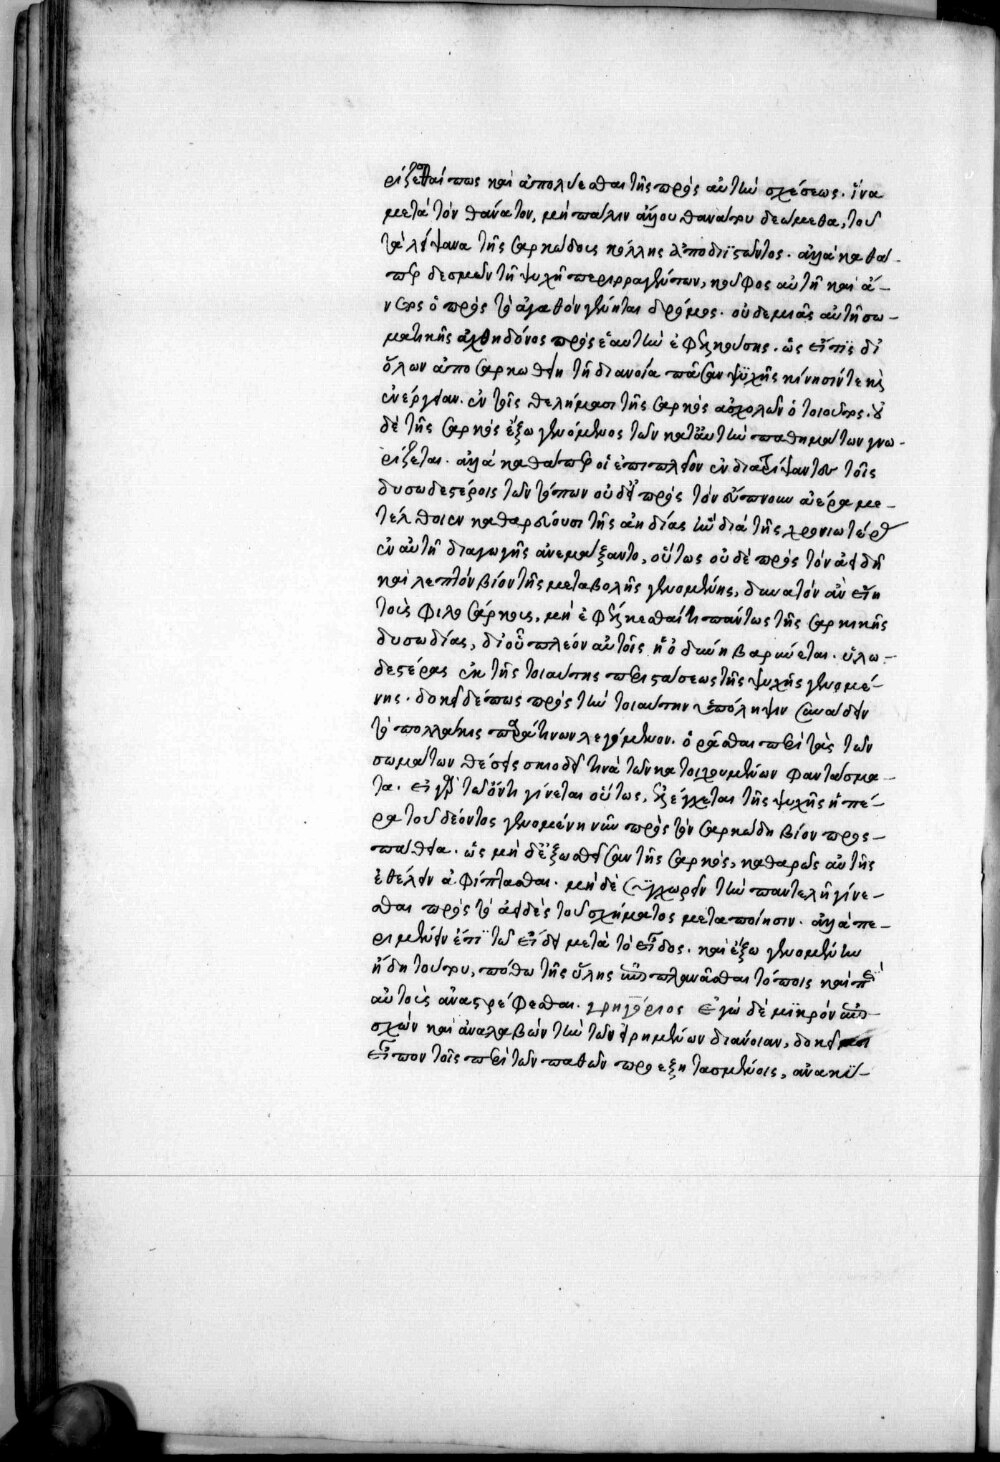 ρίζεσθαί πως καὶ ἀπολύεσθαι τῆς πρὸς αὐτὴν σχέσεως. ἵνα
μετὰ τὸν θάνατον, μὴ πάλιν ἄλλου θανάτου δεώμεθα, τοῦ
τὰ λείψανα τῆς σαρκώδους κόλλης ἀποδιϊζῶντος. ἀλλὰ καθά-
περ δεσμῶν τῇ ψυχῇ περιρραγέντων, κοῦφος αὐτῇ καὶ ἄ-
νετος ὁ πρὸς τὸ ἀγαθὸν γένηται δρόμος. οὐδεμιᾶς αὐτῇ σω-
ματικῆς ἀχθηδόνος πρὸς ἑαυτὴν ἐφελκούσης. ὡς εἴ τις δι'
ὅλων ἀποσαρκωθείη τῇ διανοία πᾶσαν ψυχῆς κίνησίν τε καὶ
ἐνέργειαν. ἐν τοῖς θελήμασι τῆς σαρκὸς ἀσχολῶν ὁ τοιοῦτος. οὐ
δὲ τῆς σαρκὸς ἔξω γενόμενος τῶν κατ' αὐτὴν παθημάτων χω-
ρίζεται. ἀλλὰ καθάπερ οἱ ἐπιπλεῖον ἐνδιατρίψαντες τοῖς
δυσωδεστέροις τῶν τόπων οὐδ' εἰ πρὸς τὸν εὔπνουν ἀέρα με-
τέλθοιεν καθαρεύουσι τῆς ἀηδίας ἣν διὰ τῆς χρονιωτέρας
ἐν αὐτῇ διαγωγῆς ἀνεμάξαντο, οὕτως οὐδὲ πρὸς τὸν ἀειδῆ
καὶ λεπτὸν βίον τῆς μεταβολῆς γενομένης, δυνατὸν ἂν εἴη
τοὺς φιλοσάρκους, μὴ ἐφέλκεσθαί τι πάντως τῆς σαρκικῆς
δυσωδίας, δι' οὗ πλέον αὐτοῖς ἡ ὀδύνη βαρύνεται. ὑλω-
δεστέρας ἐκ τῆς τοιαύτης περιστάσεως τῆς ψυχῆς γενομέ-
νης. δοκεῖ δέ πως πρὸς τὴν τοιαύτην ὑπόληψιν συνάδειν
τὸ πολλάκις παρά τινων λεγόμενον. ὁρᾶσθαι περὶ τὰς τῶν
σωμάτων θέσεις σκιοδῆ τινὰ τῶν κατοιχομένων φαντάσμα-
τα. εἰ γὰρ τῶ ὄντι γίνεται οὕτως, ἐξελέγχεται τῆς ψυχῆς ἡ πέ-
ρα τοῦ δέοντος γενομένη νῦν πρὸς τὸν σαρκώδη βίον προς-
πάθεια. ὡς μὴ δὲ ἐξωσθεῖσαν τῆς σαρκὸς, καθαρῶς αὐτῆς
ἐθέλειν ἀφίπτασθαι. μὴ δὲ συγχωρεῖν τὴν παντελῆ γίνε-
σθαι πρὸς τὸ ἀειδὲς τοῦ σχήματος μεταποίησιν. ἀλλὰ πε-
ριμένειν ἔτι τῶ εἴδει μετὰ τὸ εἶδος. καὶ ἔξω γενομένην
ἤδη τούτου, πόθω τῆς ὕλης πλανᾶσθαι τόποις καὶ περὶ
αὐτοὺς ἀναστρέφεσθαι. γρηγόριος ἐγὼ δὲ μικρὸν ἐπι-
σχὼν καὶ ἀναλαβὼν τὴν τῶν εἰρημένων διάνοιαν, δοκεῖ μοι
εἶπον τοῖς περὶ τῶν παθῶν προεξητασμένοις, ἀνακύ-